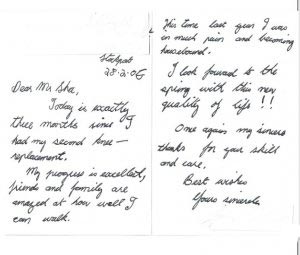 Stockport
28-2-06
Dear Mr Sha,
Today is exactly
three months since I
had my second knee-
replacement.
My progress is excellent,
friends and family are
amazed at how well I
can walk.
This time last year I was
in much pain and becoming
housebound.
I look forward to the
spring with this new
quality of life!!
Once again my sincere
thanks for your skill
and care.
Best wishes
Yours sincerely